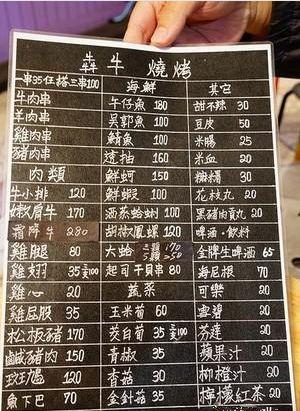 犇牛燒烤
一串35任搭三串100
牛肉串
羊肉串
雞肉串
豬肉串
肉類
牛小排 120
嫩肩牛 170
霜降牛 280
雞腿 80
雞翅 35
雞心 20
雞屁股 35
松板豬 170
鹹豬肉 150
魚下巴 70
海鮮
午仔魚 180
吳郭魚 100
鯖魚 100
透抽 160
鮮蚵 150
鮮蝦 100
酒蒸蛤蜊 100
胡椒鳳螺 120
大蛤 三顆170
起司干貝串 80
蔬菜
玉米筍 60
茭白筍 35
青椒 35
香菇 30
金針菇 35
其它
甜不辣 30
豆皮 50
米腸 25
米血 20
糯糬 30
花枝丸 20
黑豬肉貢丸 20
啤酒·飲料
金牌生啤酒 65
海尼根 70
可樂 20
雪碧 20
芬達 20
蘋果汁 20
柳橙汁 20
檸檬紅茶 20